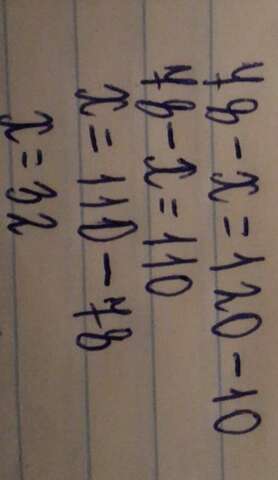 78-x=120-10
78-x=110
x=110-78
x=32